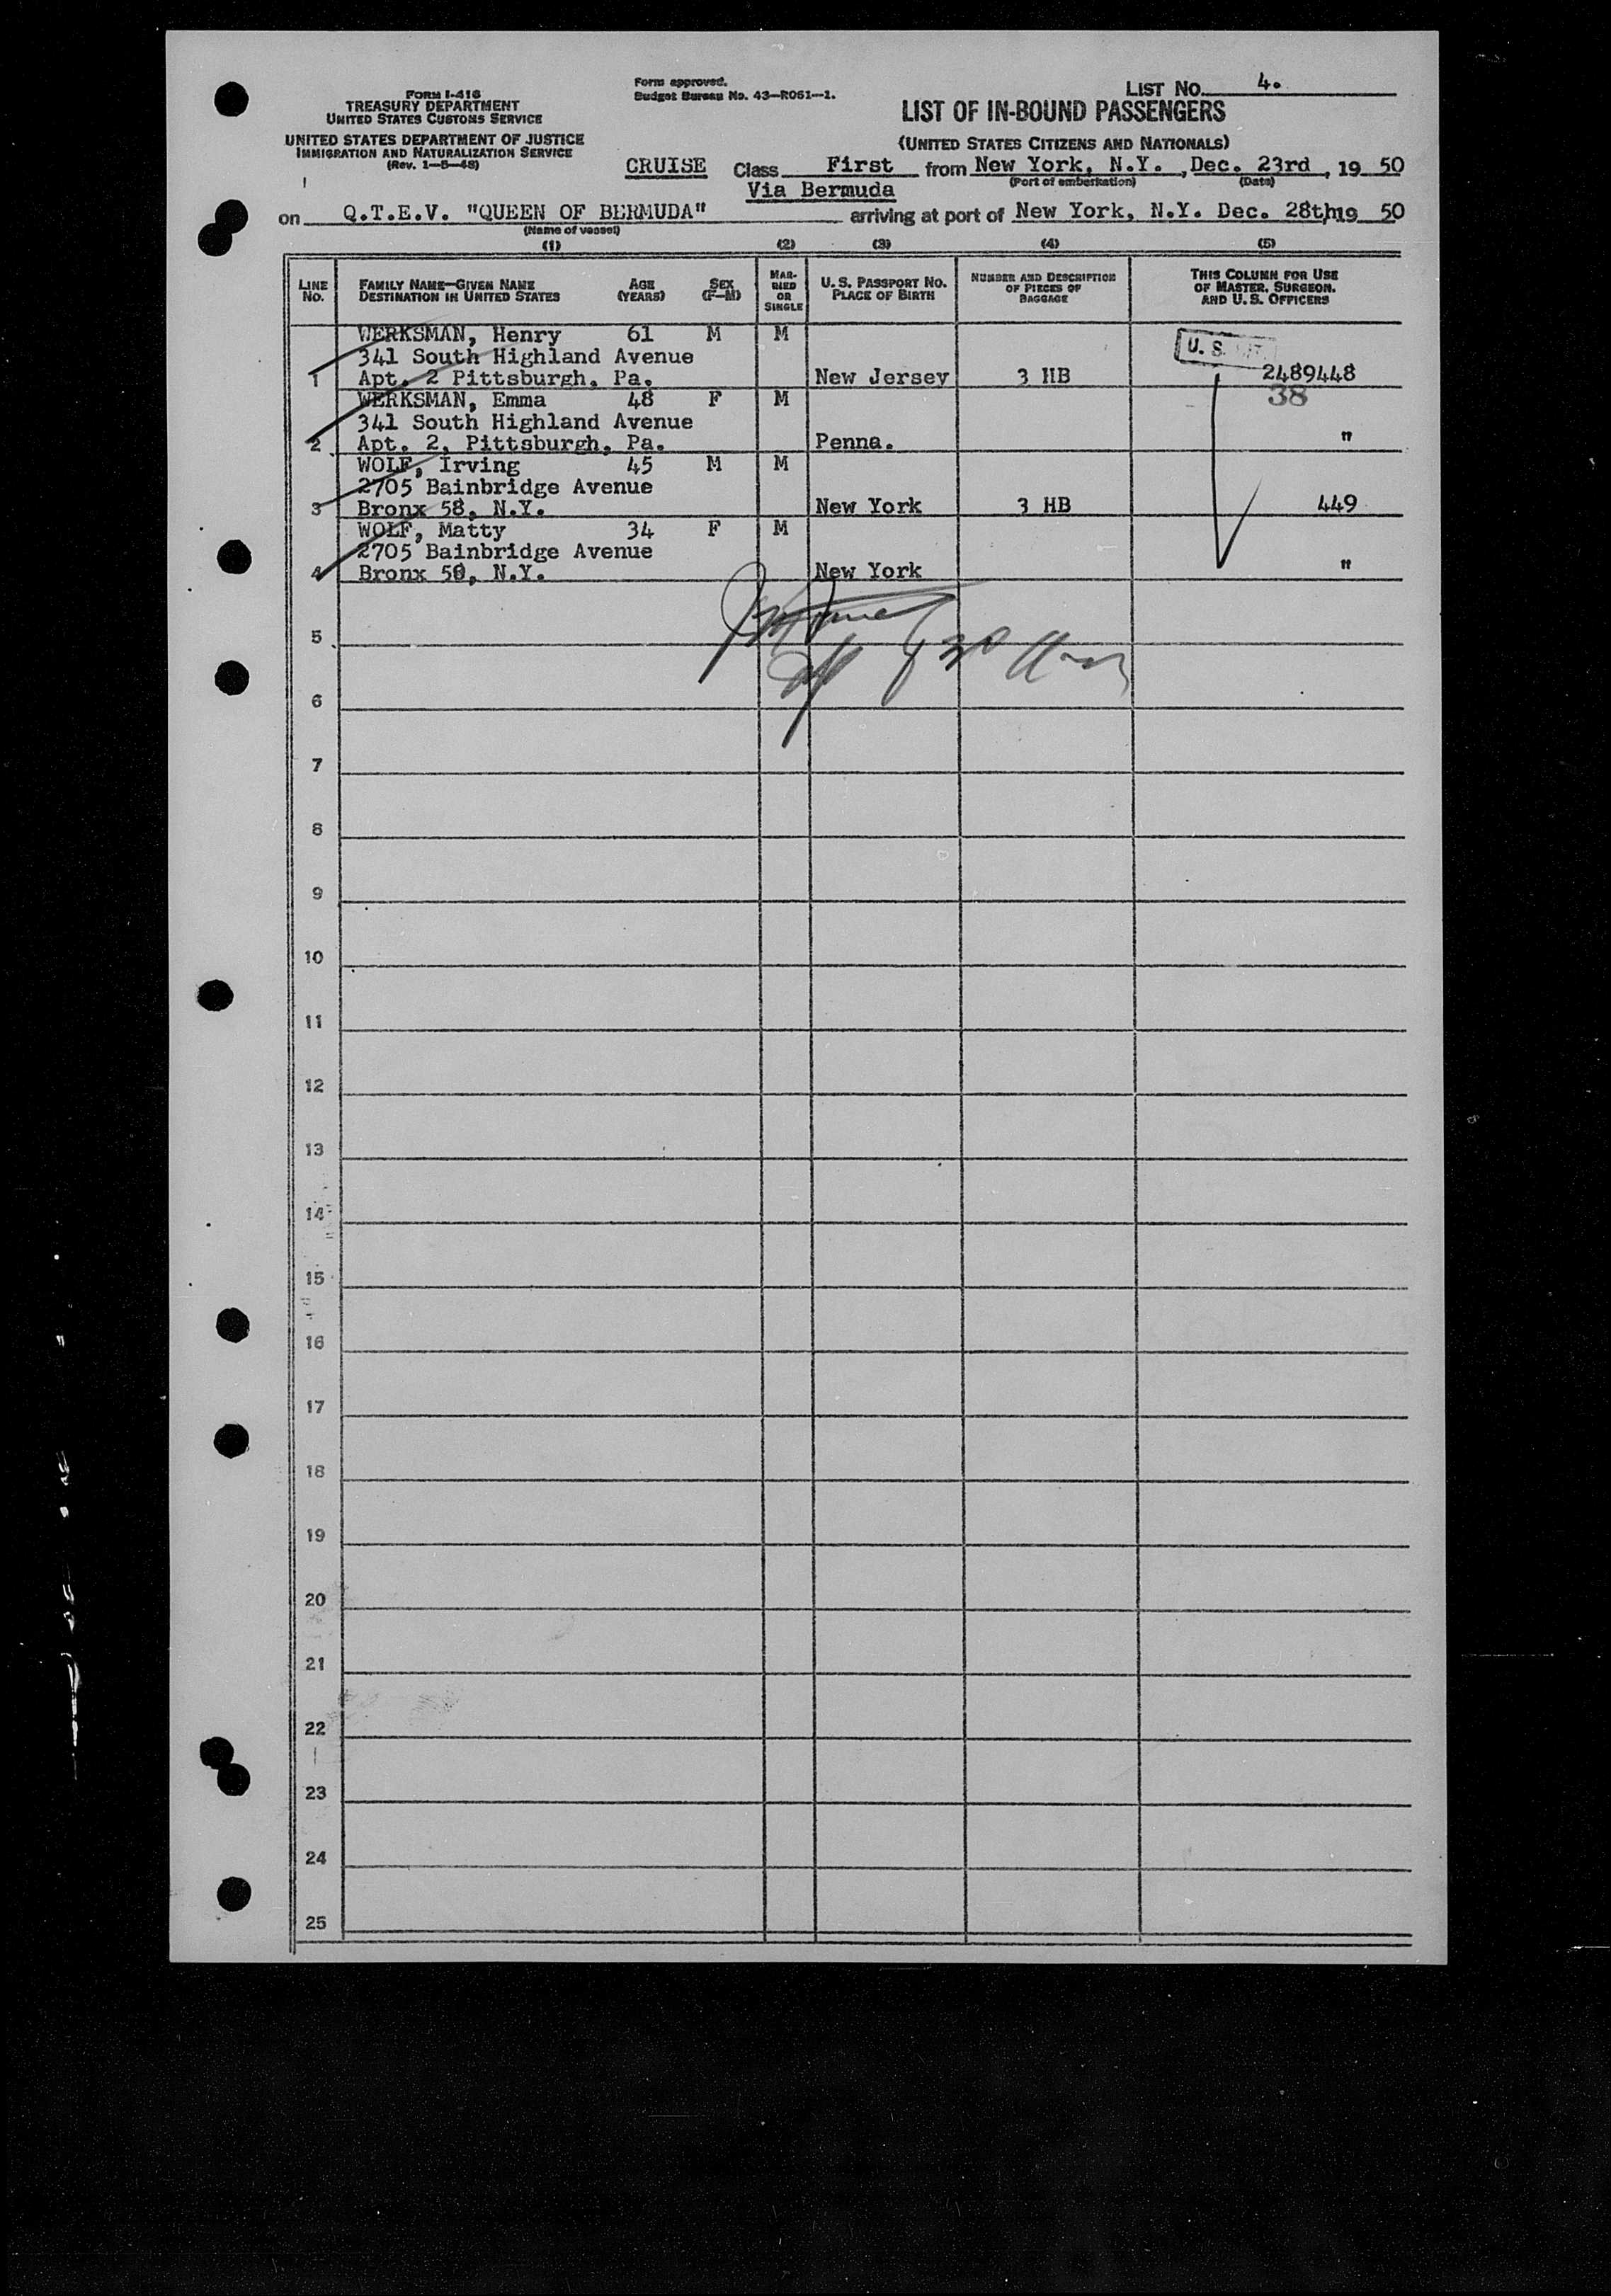 FORM I-416
TREASURY DEPARTMENT
UNITED STATES CUSTOMS SERVICE
UNITED STATES DEPARTMENT OF JUSTICE
IMMIGRATION AND NATURALIZATION SERVICE
(Rev. 1-5-48)
Form approved.
Budget Bureau No. 43-R061-1.
LIST No. 4.
LIST OF IN-BOUND PASSENGERS
(UNITED STATES CITIZENS AND NATIONALS)
CRUISE Class First from New York, N.Y., Dec. 23rd, 19 50
(Port of embarkation) (Date)
Via Bermuda
on Q.T.E.V. "QUEEN OF BERMUDA" arriving at port of New York, N.Y. Dec. 28th, 19 50
(Name of vessel)
(1) (2) (3) (4) (5)
LINE No. FAMILY NAME—GIVEN NAME DESTINATION IN UNITED STATES AGE (YEARS) SEX (F-M) MARRIED OR SINGLE U. S. PASSPORT NO. PLACE OF BIRTH NUMBER AND DESCRIPTION OF PIECES OF BAGGAGE THIS COLUMN FOR USE OF MASTER, SURGEON, AND U. S. OFFICERS
WERKSMAN, Henry 61 M M
341 South Highland Avenue U. S.
1 Apt. 2 Pittsburgh, Pa. New Jersey 3 HB 2489448
WERKSMAN, Emma 48 F M 38
341 South Highland Avenue
2 Apt. 2, Pittsburgh, Pa. Penna. "
WOLF, Irving 45 M M
2705 Bainbridge Avenue
3 Bronx 58, N.Y. New York 3 HB 449
WOLF, Matty 34 F M
2705 Bainbridge Avenue
4 Bronx N.Y. New York "
5
6
7
8
9
10
11
12
13
14
15
16
17
18
19
20
21
22
23
24
25